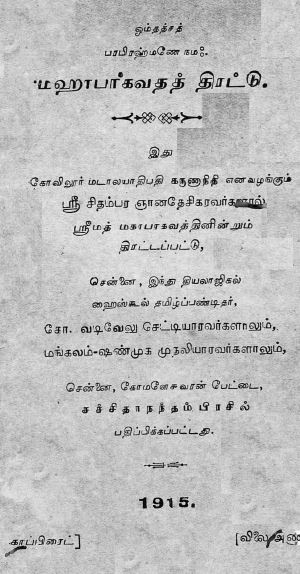 ஒம்தத்சத்
பரபிரஹ்மணே நமஃ.
மஹாபாகவதத் திரட்டு.
இது
கோவிலூர் மடாலயாதிபதி கருணாநிதி எனவழங்கும்
ஸ்ரீ சிதம்பர ஞானதேசிகரவர்களால்
ஸ்ரீமத் மகாபாகவத்தினின்றும்
திரட்டப்பட்டு,
சென்னை, இந்து தியலாஜிகல்
ஹைஸ்கூல் தமிழ்ப்பண்டிதர்,
கோ. வடிவேலு செட்டியாரவர்களாலும்,
மங்கலம்-ஷண்முக முதலியாரவர்களாலும்,
சென்னை, கோமளேசுவரன் பேட்டை,
சச்சிதாநந்தம்பிரசில்
பதிப்பிக்கப்பட்டது.
1915.
காப்பிரைட்] [விலை அண